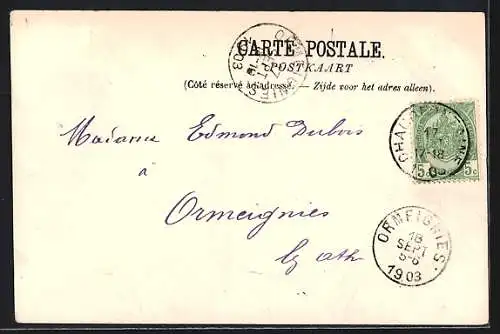 CARTE POSTALE.
POSTKAART
(Côté réservé à l'adresse. — Zijde voor het adres alleen).
Madame Edmond Dubois
à
Ormeignies
lez Ath
5c 5c
17
17-18
ORMEIGNIES
18
SEPT
5-6
1903